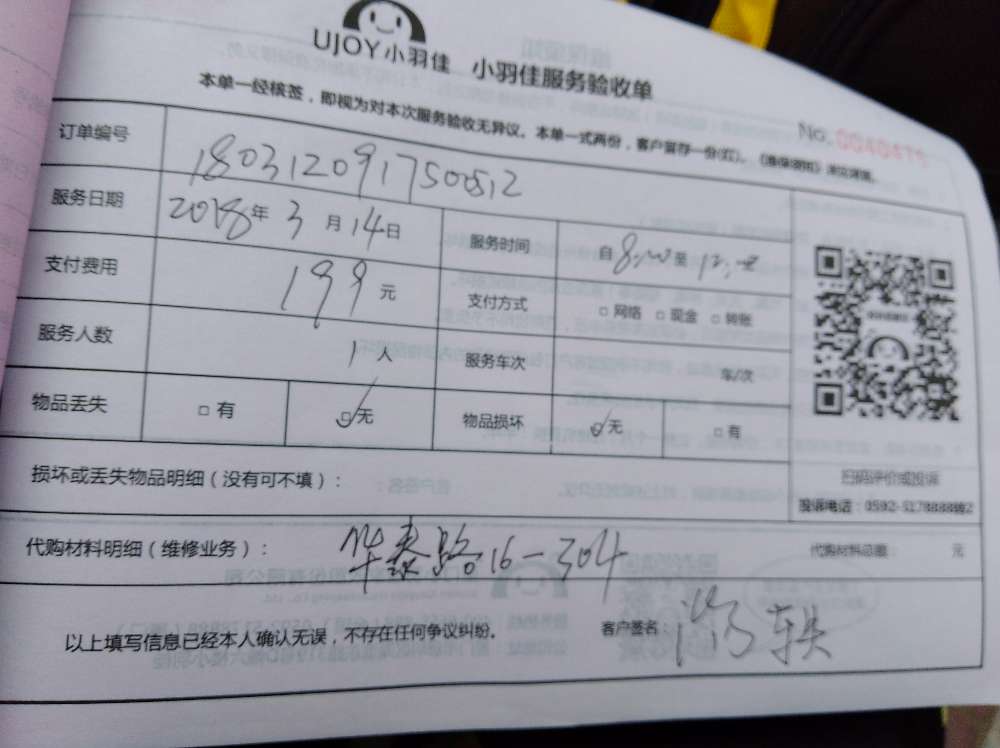 UJOY小羽佳 小羽佳服务验收单
本单一经核签，即视为对本次服务验收无异议。本单一式两份，客户留存一份(红)。
No.
订单编号 180312091750512
服务日期 2018年3月14日 服务时间 自8:00至12:00
支付费用 199元 支付方式 □网络 □现金 □转账
服务人数 1人 服务车次 车/次
物品丢失 □有 ☑无 物品损坏 ☑无 □有
损坏或丢失物品明细（没有可不填）：
扫码评价或投诉
代购材料明细（维修业务）： 华泰路16-304 代购材料总额： 元
以上填写信息已经本人确认无误，不存在任何争议纠纷。 客户签名